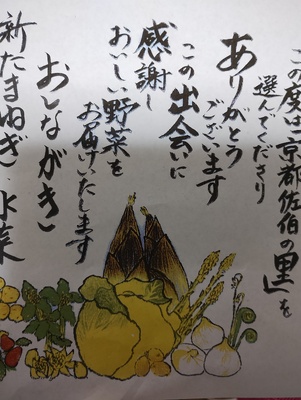 この度は京都佐伯の里を
選んでくださり
ありがとう
ございます
この出会いに
感謝し
おいしい野菜を
お届けいたします
おしながき
新たまねぎ・水菜